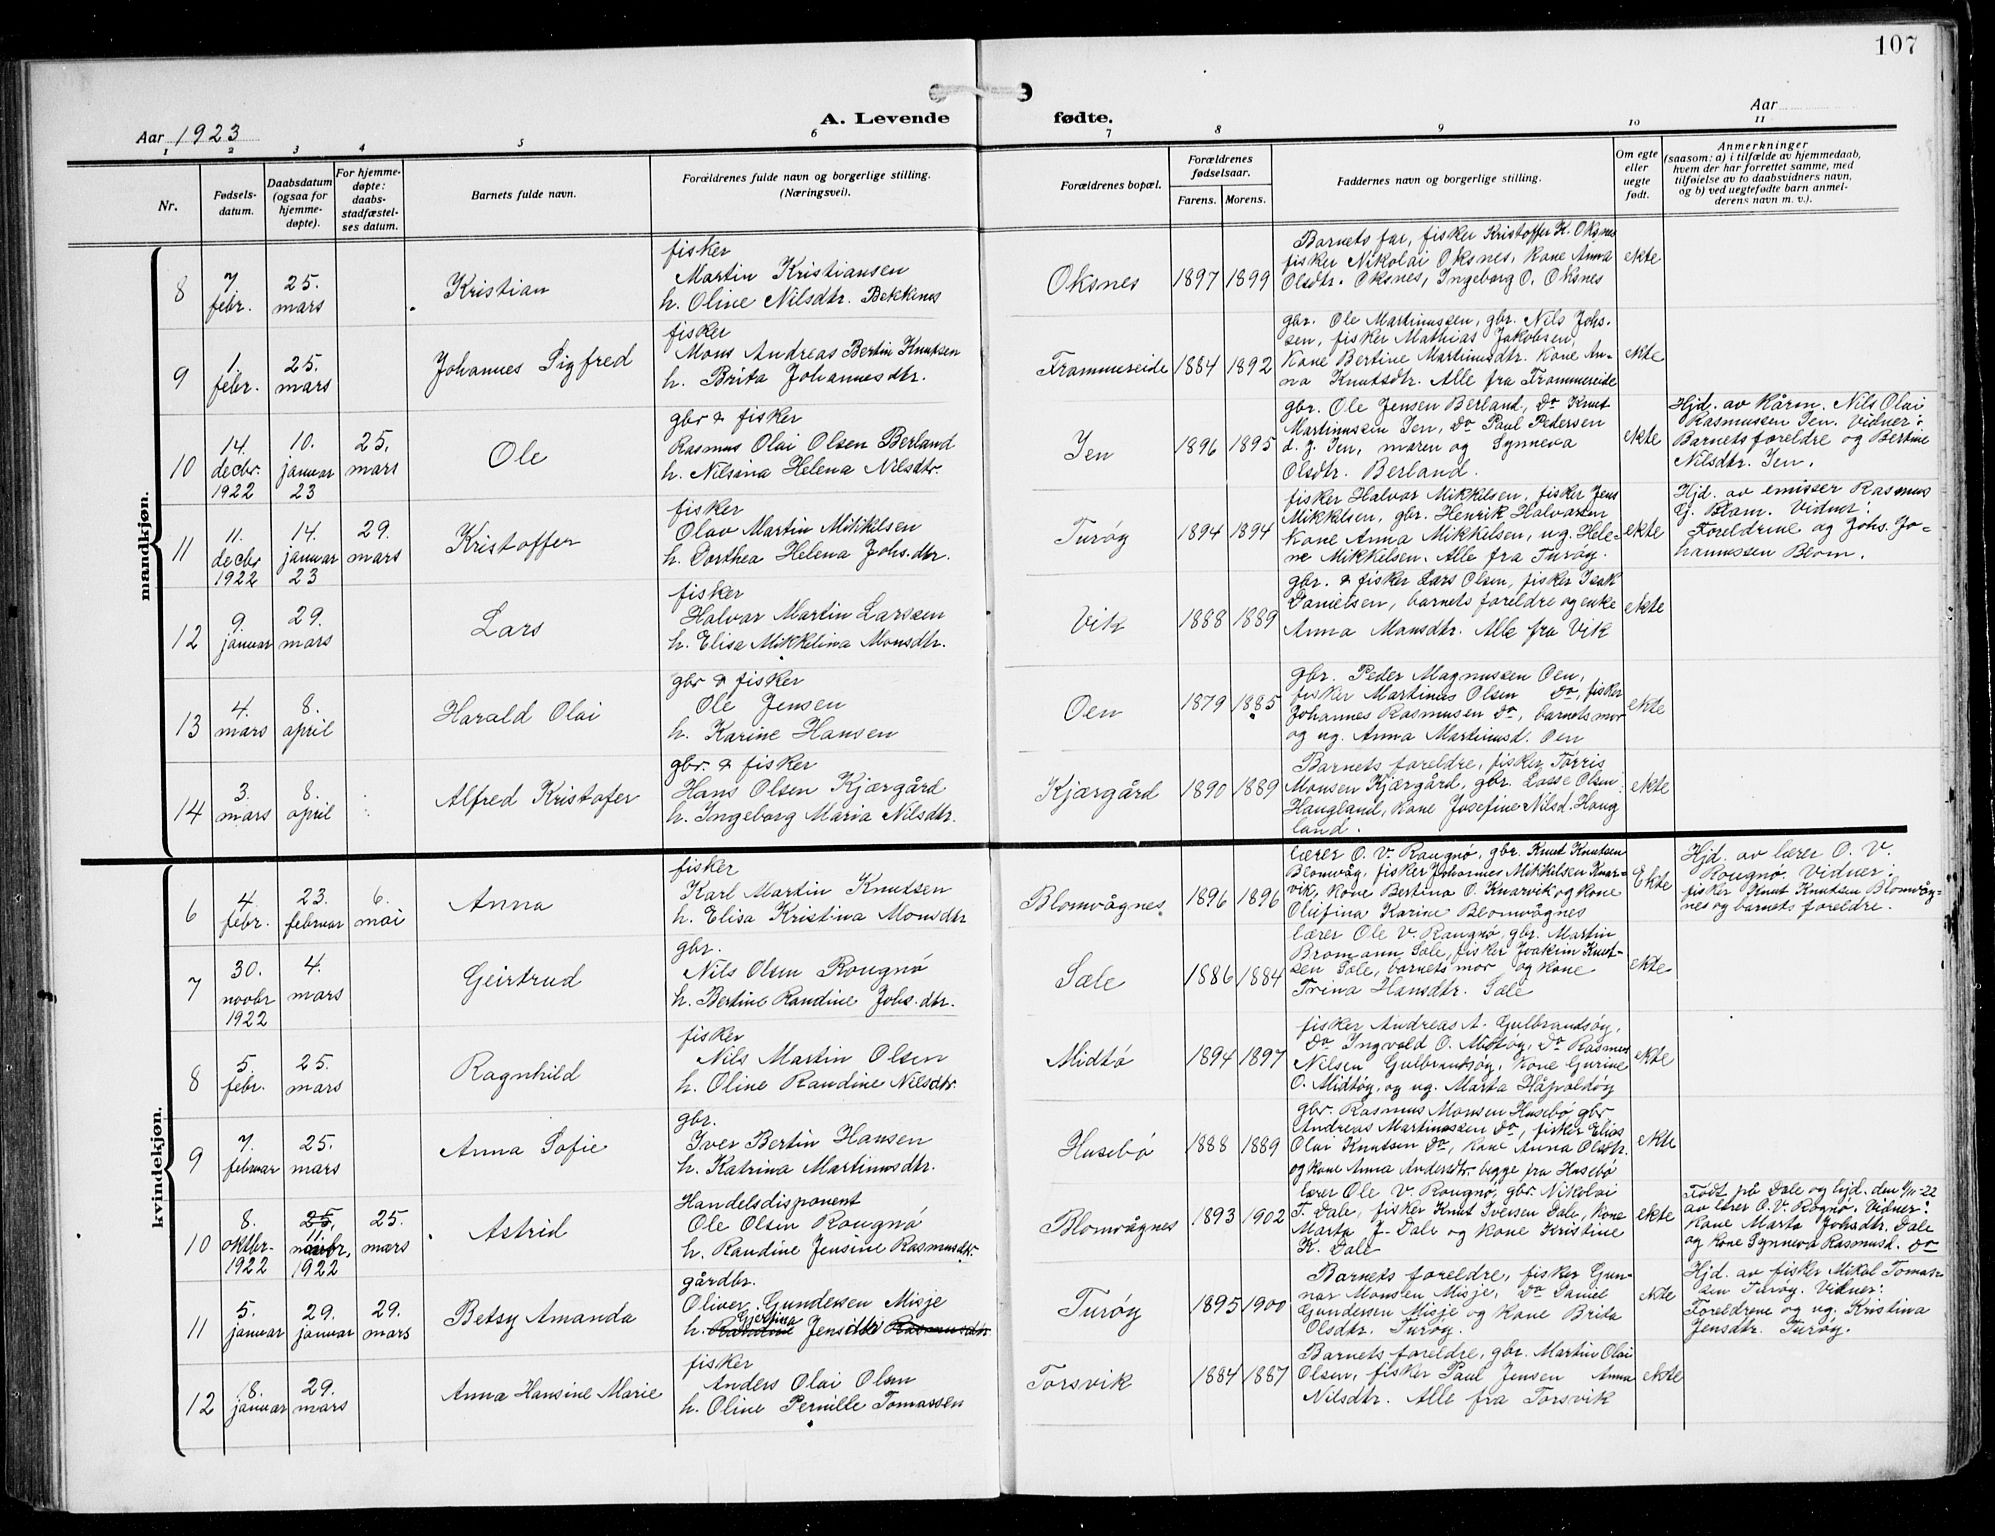 107
Aar 1923
A. Levende fødte.
Aar
1 2 3 4 5 6 7 8 9 10 11
Nr.
Fødsels-
datum.
Daabsdatum
(ogsaa for
hjemme-
døpte).
For hjemme-
døpte:
daabs-
stadfæstel-
ses datum.
Barnets fulde navn.
Forældrenes fulde navn og borgerlige stilling.
(Næringsvei).
Forældrenes bopæl.
Forældrenes
fødselsaar.
Farens. Morens.
Faddernes navn og borgerlige stilling.
Om egte
eller
uegte
født.
Anmerkninger
(saasom: a) i tilfælde av hjemmedaab,
hvem der har forrettet samme, med
tilføielse av to daabsvidners navn,
og b) ved uegtefødte barn anmel-
derens navn m. v.).
mandkjøn.
8
7
febr.
25.
mars
Kristian
fisker
Martin Kristiansen
h. Oline Nilsdtr. Bekkenes
Oksnes
1897 1899
Barnets far, fisker Kristoffer K. Oksnes
fisker Nikolai Oksnes, kone Anna
Olsdtr. Oksnes, Ingeborg O. Oksnes
ekte
9
1.
febr.
25.
mars
Johannes Sigfred
fisker
Mons Andreas Bertin Knutsen
h. Brita Johannesdtr.
Frammereide
1884 1892
gbr. Ole Martinussen, gbr. Nils Johs-
sen, fisker Mathias Jakobsen,
Kone Bertine Martinusdtr. Kone An-
na Knutsdtr. Alle fra Frammereide
ekte
10
14.
decbr.
1922
10.
januar
23
25.
mars
Ole
gbr & fisker
Rasmus Olai Olsen Berland
h. Nilsina Helena Nilsdtr
Jen
1896 1895
gbr. Ole Jensen Berland, Do Knut
Martinussen Jen, Do Paul Pedersen
d. J. Jen, maren og Synneva
Olsdtr. Berland.
ekte
Hjd. av Kårm. Nils Olai
Rasmussen Jen. Vidner:
Barnets foreldre og Bertine
Nilsdtr. Jen.
11
11.
decbr
1922
14.
januar
23
29.
mars
Kristoffer
fisker
Olav Martin Mikkelsen
h. Dorthea Helena Johs.dtr.
Turøy
1894 1894
fisker Halvar Mikkelsen, fisker Jens
Mikkelsen, gbr. Henrik Halvarsen
Kone Anna Mikkelsen, ug. Hele-
ne Mikkelsen. Alle fra Turøy.
ekte
Hjd. av emissær Rasmus
J. Blom. Vidner:
Foreldrene og Johs. Jo-
hannussen Blom.
12
9.
januar
29.
mars
Lars
fisker
Halvar Martin Larssen
h. Elisa Mikkelina Monsdtr.
Vik
1888 1889
gbr. & fisker Lars Olsen, fisker Isak
Danielsen, barnets foreldre og enke
Anna Monsdtr. Alle fra Vik
ekte
13
4.
mars
8.
april
Harald Olai
gbr & fisker
Ole Jensen
h. Karine Hansen
Oen
1879 1885
gbr. Peder Magnussen Oen,
fisker Martinus Olsen Do, fisker
Johannes Rasmusen Do, barnets mor
og ug. Anna Martinusd. Oen
ekte
14
3.
mars
8.
april
Alfred Kristofer
gbr. & fisker
Hans Olsen Kjærgård
h. Ingeborg Maria Nilsdtr.
Kjærgård
1890 1889
Barnets foreldre, fisker Tørris
Monsen Kjærgård, gbr. Lasse Olsen
Haugland, kone Josefine Nilsd. Haug
land.
ekte
kvindekjøn.
6
4.
febr.
23.
februar
6.
mai
Anna
fisker
Karl Martin Knutsen
h. Elisa Kristina Monsdtr
Blomvågnes
1896 1896
lærer O. V. Rougnø, gbr. Knut Knutsen
Blomvåg, fisker Johannes Mikkelsen Knar-
vik, kone Bertina O. Knarvik og kone
Olufina Karine Blomvågnes
Ekte
Hjd. av lærer O. V.
Rougnø. Vidner:
fisker Knut Knutsen Blomvåg-
nes og barnets foreldre.
7
30.
novbr
1922
4.
mars
Geirtrud
gbr.
Nils Olsen Rougnø
h. Bertine Randine Johs.dtr.
Sæle
1886 1884
lærer Ole V. Rougnø, gbr. Martin
Bromann Sæle, fisker Joakim Knut-
sen Sæle, barnets mor og kone
Trina Hansdtr. Sæle
ekte
8
5.
febr.
25.
mars
Ragnhild
fisker
Nils Martin Olsen
h. Oline Randine Nilsdtr.
Midtø
1894 1897
fisker Andreas A. Gulbrandsøy,
Do Ingvald O. Midtøy, Do Rasmus
Nilsen Gulbrandsøy, Kone Gurine
O. Midtøy, og ug. Marta Håpoldøy
ekte
9
7.
februar
25.
mars
Anna Sofie
gbr.
Iver Bertin Hansen
h. Katrina Martinusdtr.
Husebø
1888 1889
gbr. Rasmus Monsen Husebø, gbr
Andreas Martinussen Do, fisker Elias
Olai Knutsen Do, kone Anna Olsdtr.
og kone Anna Andersdtr. begge fra Husebø
ekte
10
8.
oktbr.
1922
25.
11.
novbr,
1922
25.
mars
Astrid
Handelsdisponent
Ole Olsin Rougnø
h. Randine Jensine Rasmusdtr
Blomvågnes
1893 1902
lærer Ole V. Rougnø, gbr. Nikolai
T. Dale, fisker Knut Iversen Dale, kone
Marta J. Dale og kone Kristine
K. Dale
ekte
Født på Dale og hjd. den 11/11-22
av lærer O. V. Rognø. Vidner:
Kone Marta Johsdtr. Dale
og kone Synneva Rasmusd. Do
11
5.
januar
29.
januar
29.
mars
Betsy Amanda
gårdbr.
Oliver Gundersen Misje
Gjertina
h. Jensdtr Rasmusdtr
Turøy
1895 1900
Barnets foreldre, fisker Gun-
nar Monsen Misje, Do Daniel
Gundersen Misje og kone Brita
Olsdtr. Turøy.
ekte
Hjd. av fisker Mikal Tomas-
sen Turøy. Vidner:
Foreldrene og ug. Kristina
Jensdtr. Turøy.
12
18.
januar
29.
mars
Anna Hansine Marie
fisker
Anders Olai Olsen
h. Oline Pernille Tomassen
Torsvik
1884 1887
Barnets foreldre, gbr. Martin Olai
Olsen, fisker Paul Jensen Anna
Nilsdtr. Alle fra Torsvik
ekte